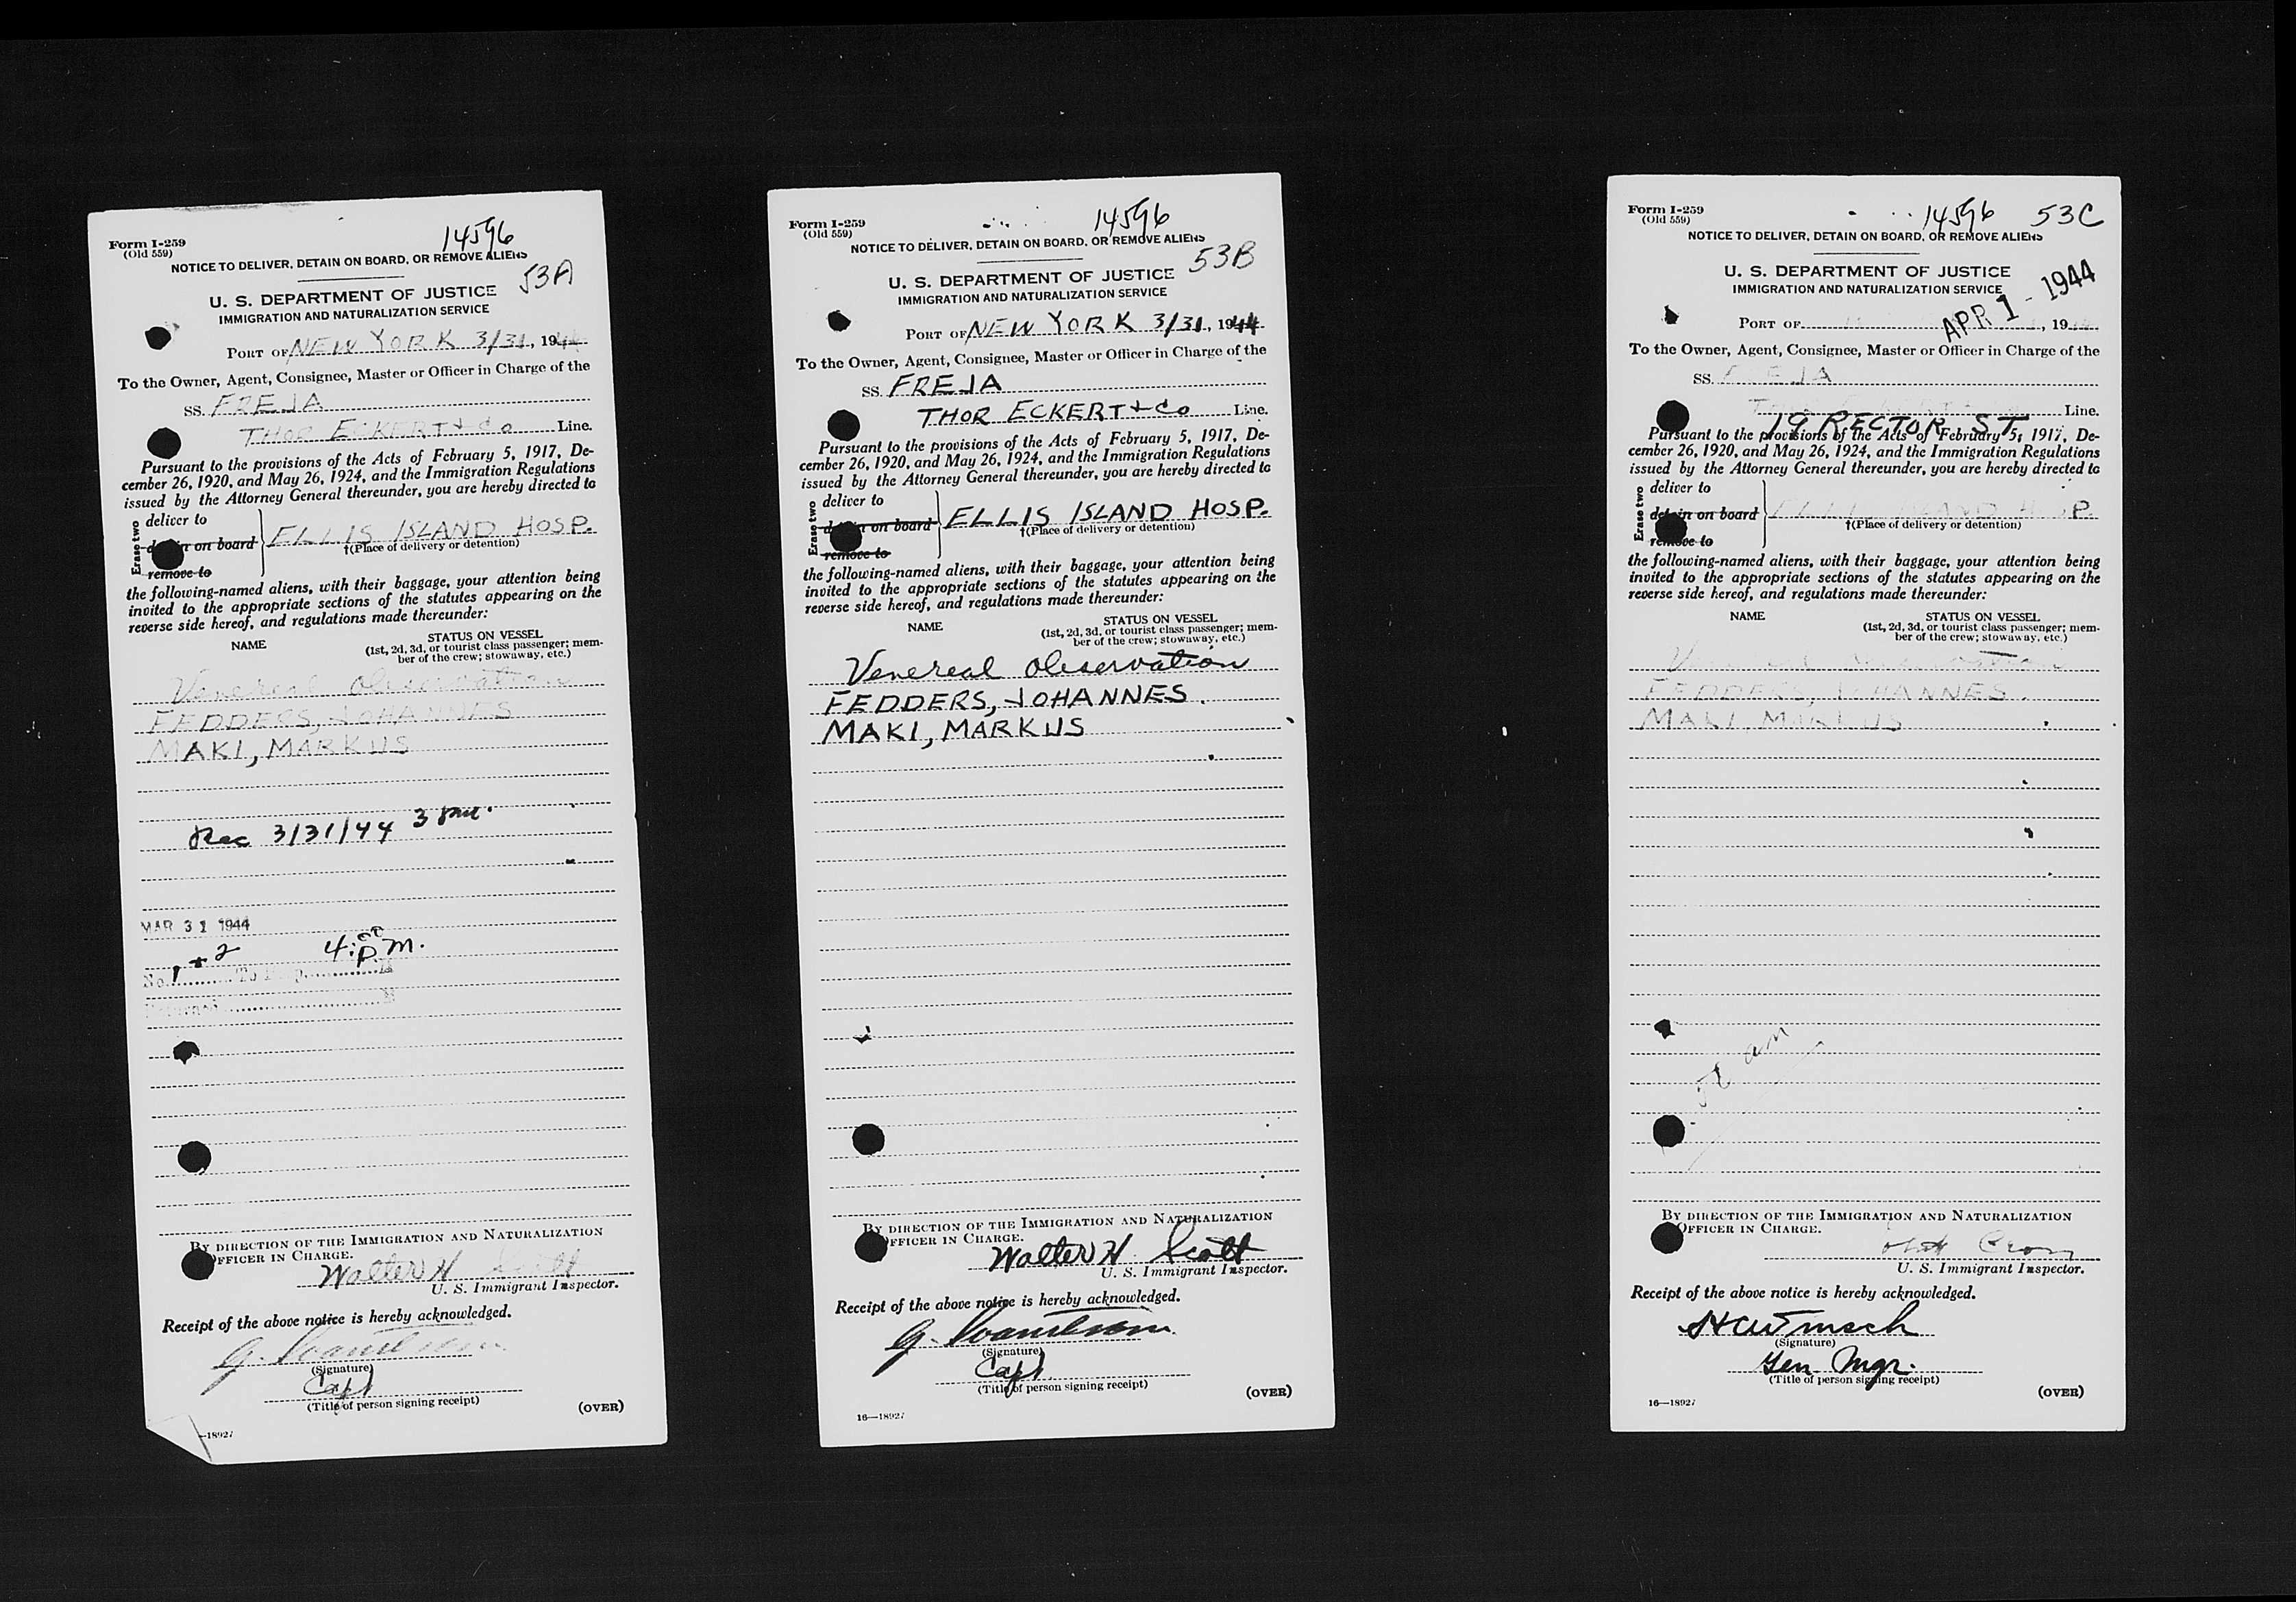 Form I-259
(Old 559)
14596
NOTICE TO DELIVER, DETAIN ON BOARD, OR REMOVE ALIENS
53A
U. S. DEPARTMENT OF JUSTICE
IMMIGRATION AND NATURALIZATION SERVICE
PORT OF NEW YORK 3/31, 1944
To the Owner, Agent, Consignee, Master or Officer in Charge of the
SS. FREJA
THOR ECKERT + Co Line.
Pursuant to the provisions of the Acts of February 5, 1917, De-
cember 26, 1920, and May 26, 1924, and the Immigration Regulations
issued by the Attorney General thereunder, you are hereby directed to
Erase two
deliver to
detain on board
remove to
ELLIS ISLAND HOSP.
†(Place of delivery or detention)
the following-named aliens, with their baggage, your attention being
invited to the appropriate sections of the statutes appearing on the
reverse side hereof, and regulations made thereunder:
NAME
STATUS ON VESSEL
(1st, 2d, 3d, or tourist class passenger; mem-
ber of the crew; stowaway, etc.)
Venereal Observation
FEDDERS, JOHANNES
MAKI, MARKUS
Rec 3/31/44 3 pm.
MAR 31 1944
4:00 P.M.
No. 1 + 2 To Hosp.
Returned
BY DIRECTION OF THE IMMIGRATION AND NATURALIZATION
OFFICER IN CHARGE.
Walter H Scott
U. S. Immigrant Inspector.
Receipt of the above notice is hereby acknowledged.
(Signature)
Capt
(Title of person signing receipt)
(OVER)
—18927
Form I-259
(Old 559)
14596
NOTICE TO DELIVER, DETAIN ON BOARD, OR REMOVE ALIENS
53B
U. S. DEPARTMENT OF JUSTICE
IMMIGRATION AND NATURALIZATION SERVICE
PORT OF NEW YORK 3/31, 1944
To the Owner, Agent, Consignee, Master or Officer in Charge of the
SS. FREJA
THOR ECKERT + Co Line.
Pursuant to the provisions of the Acts of February 5, 1917, De-
cember 26, 1920, and May 26, 1924, and the Immigration Regulations
issued by the Attorney General thereunder, you are hereby directed to
Erase two
deliver to
detain on board
remove to
ELLIS ISLAND HOSP.
†(Place of delivery or detention)
the following-named aliens, with their baggage, your attention being
invited to the appropriate sections of the statutes appearing on the
reverse side hereof, and regulations made thereunder:
NAME
STATUS ON VESSEL
(1st, 2d, 3d, or tourist class passenger; mem-
ber of the crew; stowaway, etc.)
Venereal Observation
FEDDERS, JOHANNES.
MAKI, MARKUS
BY DIRECTION OF THE IMMIGRATION AND NATURALIZATION
OFFICER IN CHARGE.
Walter H Scott
U. S. Immigrant Inspector.
Receipt of the above notice is hereby acknowledged.
(Signature)
Capt
(Title of person signing receipt)
(OVER)
16—18927
Form I-259
(Old 559)
14596 53C
NOTICE TO DELIVER, DETAIN ON BOARD, OR REMOVE ALIENS
U. S. DEPARTMENT OF JUSTICE
IMMIGRATION AND NATURALIZATION SERVICE
APR 1 - 1944
PORT OF , 19
To the Owner, Agent, Consignee, Master or Officer in Charge of the
SS. FREJA
Line.
19 RECTOR ST
Pursuant to the provisions of the Acts of February 5, 1917, De-
cember 26, 1920, and May 26, 1924, and the Immigration Regulations
issued by the Attorney General thereunder, you are hereby directed to
Erase two
deliver to
detain on board
remove to
ELLIS ISLAND HOSP.
†(Place of delivery or detention)
the following-named aliens, with their baggage, your attention being
invited to the appropriate sections of the statutes appearing on the
reverse side hereof, and regulations made thereunder:
NAME
STATUS ON VESSEL
(1st, 2d, 3d, or tourist class passenger; mem-
ber of the crew; stowaway, etc.)
Venereal Observation
FEDDERS, JOHANNES.
MAKI, MARKUS
am
BY DIRECTION OF THE IMMIGRATION AND NATURALIZATION
OFFICER IN CHARGE.
U. S. Immigrant Inspector.
Receipt of the above notice is hereby acknowledged.
(Signature)
Gen Mgr.
(Title of person signing receipt)
(OVER)
16—18927